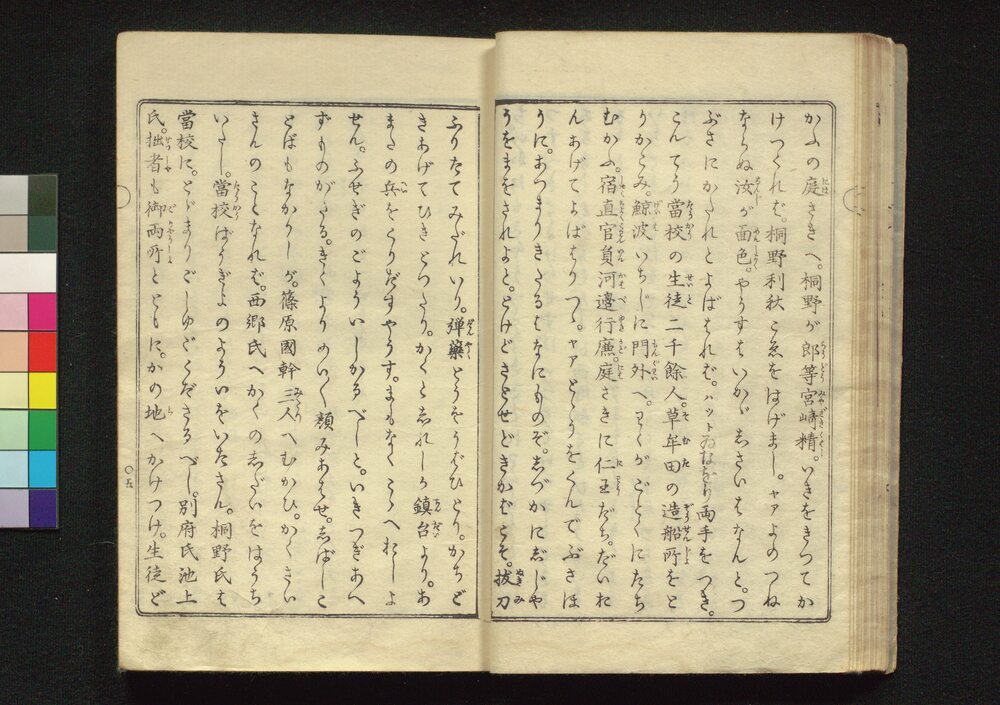 かふの庭さきへ。桐野が郎等宮崎精。いきをきつてか
けつくれば。桐野利秋こゑをはげまし。ヤァよのつね
ならぬ汝が面色。やうすはいかゞしさいはなんと。つ
ぶさにかたれとよばゝれば。ハットゐなをり両手をつき。
こんてう當校の生徒二千餘人。草牟田の造船所をと
りかこみ。鯨波いちじに門外へ。わくがごとくにたち
むかふ。宿直官負河邉行廉。庭さきに仁王だち。だいお
んあげてよばはりつゝ。ヤァとゝうをくんでぶさほ
うに。あつまりきたるはなにものぞ。しづかにじじや
うをまをされよと。とけどさとせどきかばこそ。抜刀
ふりたてみだれいり。彈藥とうをうばひとり。かちど
きあげてひきとつたり。かくとしれしか鎮台より。あ
またの兵をくりだすやうす。まもなくこゝへおしよ
せん。ふせぎのごよういしかるべしと。いきつぎあへ
ずものがたる。きくよりめい〳〵顔みあはせ。しばしこ
とばもなかりしが。篠原國幹三人へむかひ。かくさい
さんのことなれば。西郷氏へかくのしだいをほうち
いたし。當校ばうぎよのよういをいたさん。桐野氏は
當校に。とゞまりごしゆごくださるべし。別府氏池上
氏。拙者も御両所とともに。かの地へかけつけ。生徒ど
〇五